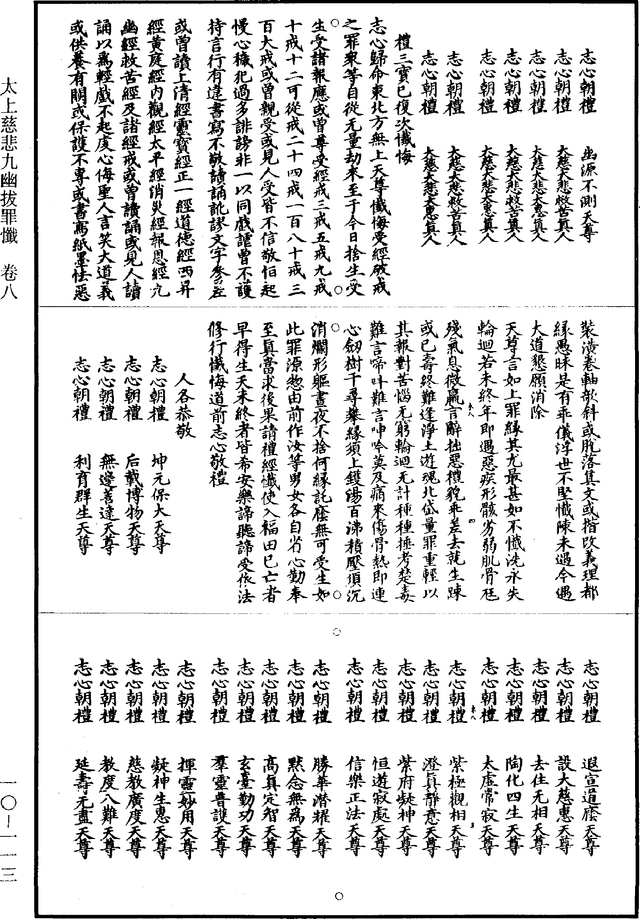 太上慈悲九幽拔罪懺　卷八
一〇—一一三
志心朝禮　幽源不測天尊
志心朝禮　大慈大悲救苦真人
志心朝禮　大慈大悲大惠真人
志心朝禮　大慈大悲救苦真人
志心朝禮　大慈大悲大惠真人
志心朝禮　大慈大悲救苦真人
志心朝禮　大慈大悲大惠真人
禮三寶已復次懺悔
志心歸命東北方無上天尊懺悔受經破戒
之罪衆等自從无量劫來至于今日捨生受
生受諸報應或曾尊受經戒三戒五戒九戒
十戒十二可從戒二十四戒一百八十戒三
百大戒或曾親受或見人受皆不信敬怕起
慢心穢犯過多誹謗非一以同戲謔曾不護
持言行有違書寫不敬讀誦訛謬文字參差
或曾讀上清經靈寶經正一經道德經西昇
經黃庭經內觀經太平經消災經報恩經九
幽經救苦經及諸經戒或曾讀誦或見人讀
誦以爲輕戲不起虔心侮聖人言笑大道義
或供養有闕或保護不專或書寫紙墨怯惡
裝潢卷軸欹斜或脫落其文或揩改義理都
緣愚昧是有乖儀浮世不堅懺陳未過今遇
大道懇願消除
天尊言如上罪緣其尤最甚如不懺洗永失
輪迴若未終年即遇惡疾形骸劣弱肌骨尫
殘氣息微羸言辭拙惡檟貌乖差去就生疎
或已壽終難逢淨土遊魂北岱量罪重輕以
其報對苦惱无窮輪迴无計種種捶考楚毒
難言啼叶難言呻吟莫及痛來傷骨熱即連
心劒樹千尋攀緣須上鑊湯百沸積壓須沉
消爛形軀晝夜不捨何緣託廕無可受生如
此罪源惣由前作汝等男女各自省心勤奉
至真當求後果請禮經懺使入福田已亡者
早得生天未終者皆希安樂諦聽諦受依法
修行懺悔道前志心敬禮
人各恭敬
志心朝禮　坤元保大天尊
志心朝禮　后載博物天尊
志心朝禮　無邊善達天尊
志心朝禮　利育群生天尊
志心朝禮　退宣道廕天尊
志心朝禮　設大慈惠天尊
志心朝禮　去住无相天尊
志心朝禮　陶化四生天尊
志心朝禮　太虛常寂天尊
志心朝禮　紫極觀相天尊
志心朝禮　澄真靜意天尊
志心朝禮　紫府凝神天尊
志心朝禮　恒遊寂處天尊
志心朝禮　信樂正法天尊
志心朝禮　勝華潛耀天尊
志心朝禮　默念無為天尊
志心朝禮　高真定智天尊
志心朝禮　玄臺勤功天尊
志心朝禮　羣靈普護天尊
志心朝禮　揮靈妙用天尊
志心朝禮　凝神生惠天尊
志心朝禮　慈教廣度天尊
志心朝禮　教度八難天尊
志心朝禮　延壽无盡天尊